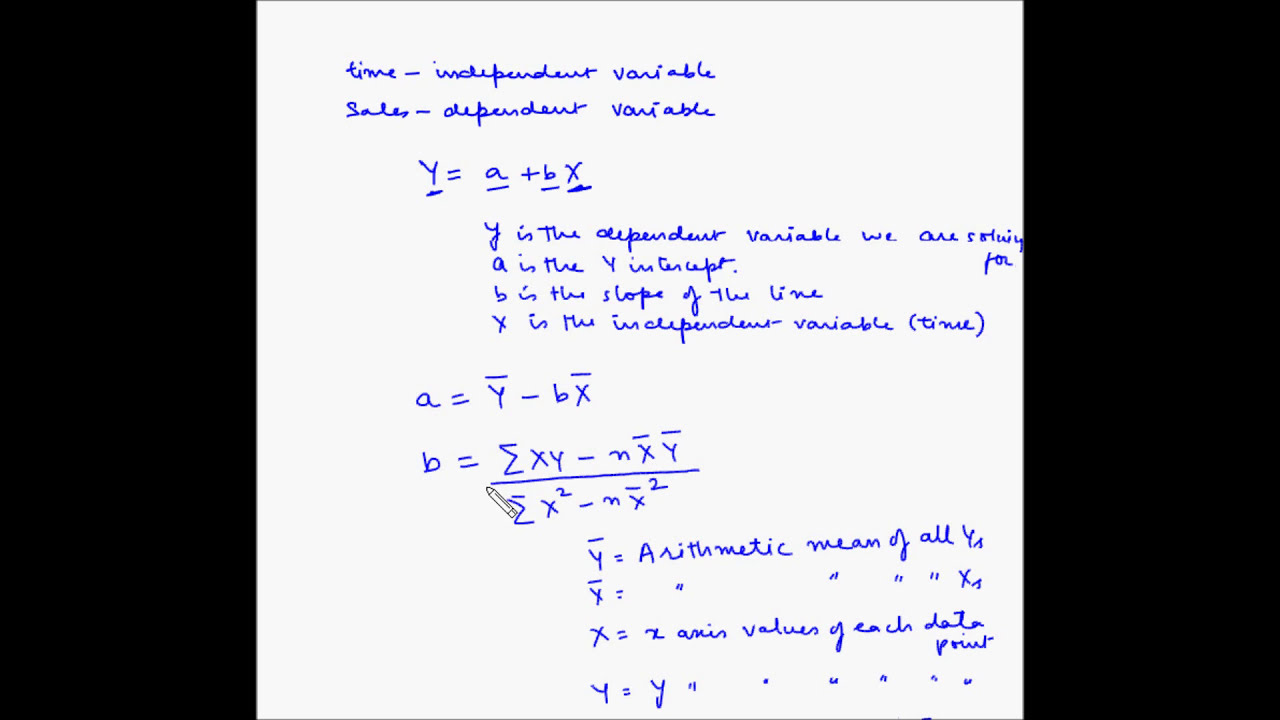 time – independent variable
Sales – dependent variable
Y = a + b X
Y is the dependent variable we are solving
for
a is the Y intercept.
b is the slope of the line
X is the independent variable (time)
a = Y̅ – bX̅
b = ∑ XY – n X̅ Y̅
∑ X² – n X̅²
Y̅ = Arithmetic mean of all Ys
X̅ = " " " " Xs
X = x axis values of each data
point
Y = y " " " " " "